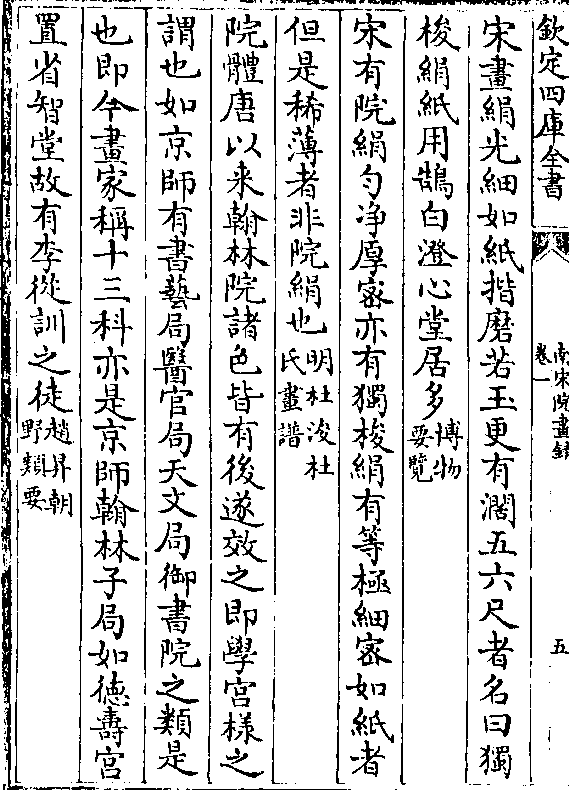 欽定四庫全書
南宋院畫錄
卷一
五
宋畫絹光細如紙揩磨若玉更有濶五六尺者名曰獨
梭絹紙用鵠白澄心堂居多博物
要覽
宋有院絹勻淨厚密亦有獨梭絹有等極細密如紙者
但是稀薄者非院絹也明杜浚杜
氏畫譜
院體唐以來翰林院諸色皆有後遂效之即學宫樣之
謂也如京師有書藝局醫官局天文局御書院之類是
也即今畫家稱十三科亦是京師翰林子局如徳壽宫
置省智堂故有李從訓之徒趙昇朝
野類要